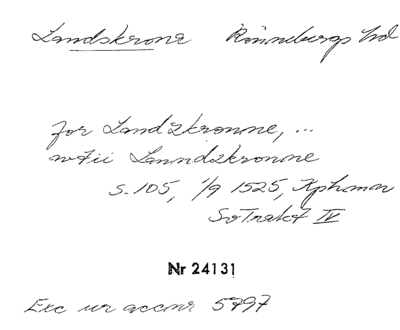 Landskrona Rönnebergs hd
for Landzkronne, ...
wtii Lanndzkronne
s. 105, 1/9 1525, Kphamn
SoTrakt IV
Nr 24131
Exc ur accnr 5797